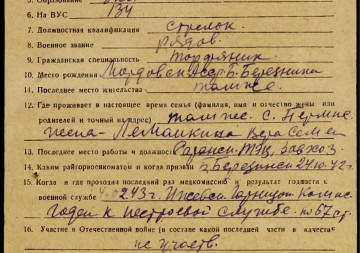 6. На ВУС 134
7. Должностная квалификация стрелок
8. Военное звание рядов.
9. Гражданская специальность торфяник
10. Место рождения Мордовск. Асср Б-Березники
11. Последнее место жительства там же.
12. Где проживает в настоящее время семья (фамилия, имя и отчество жены или
родителей и точный их адрес) там же. с. Пермис
жена - Вера Семен
13. Последнее место работы и должность ТЭЦ, завхоз
14. Каким райгорвоенкоматом и когда призван Б Березники 24.10.42 г
15. Когда и где проходил последний раз медкомиссию и результат годности к
военной службе 4.02.43 г. Ижевск
годен к нестроевой службе. по 67 ст.
16. Участие в Отечественной войне (в составе какой последней части в качестве
не участв.